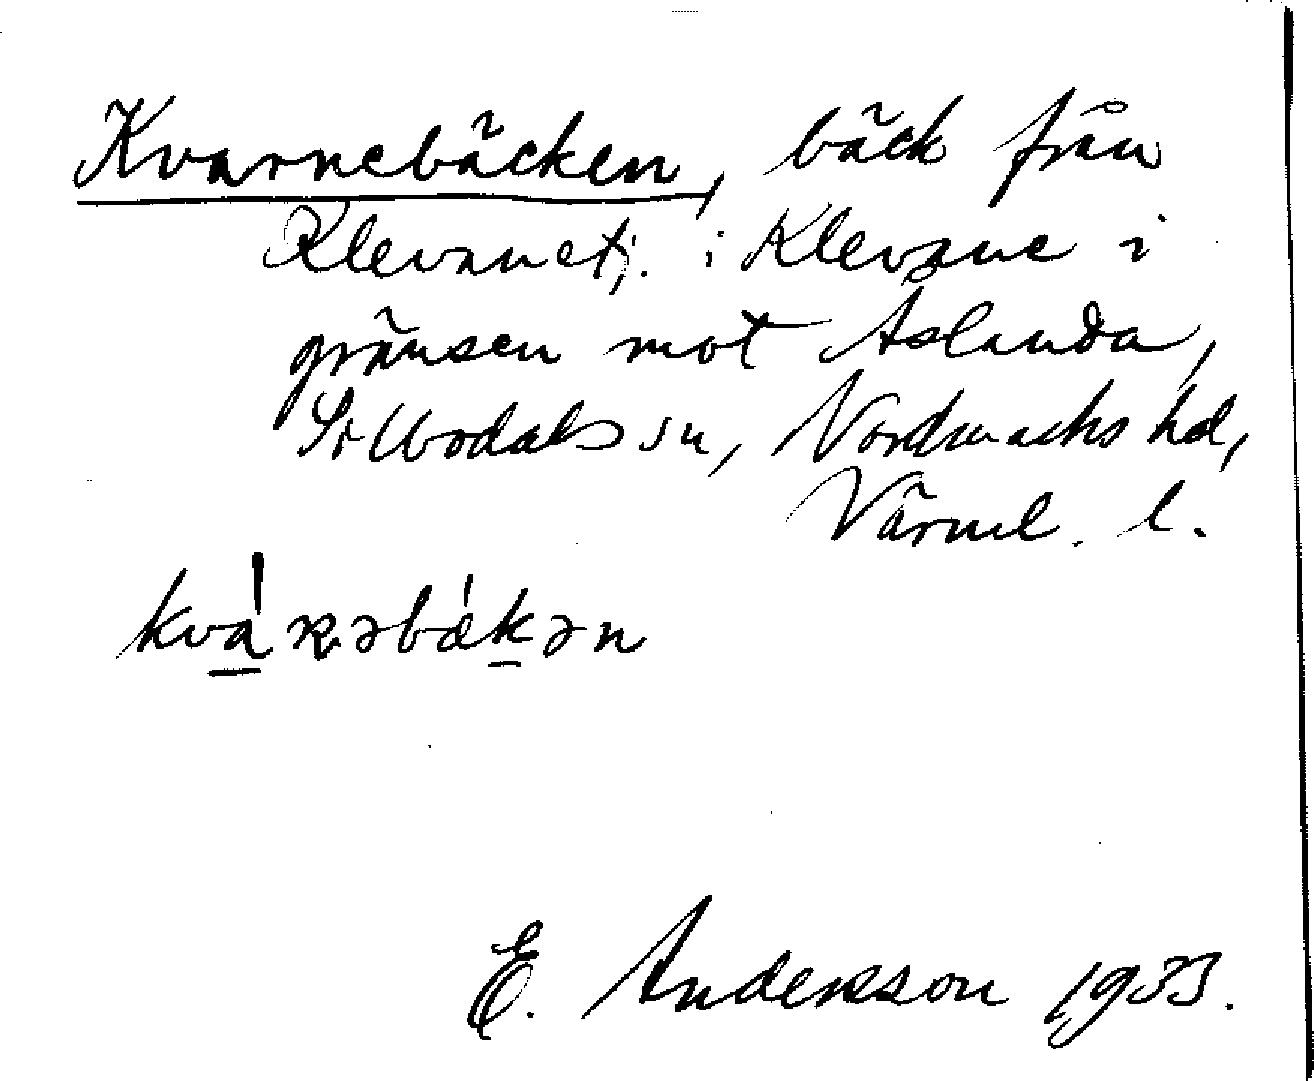 Kvarnebäcken, bäck från
Klevanetj. i Klevane i
gränsen mot Åslanda,
Sillbodals sn, Nordmarks hd,
Värml. l.
kvàɴəbä́kən
E. Andersson 1933.